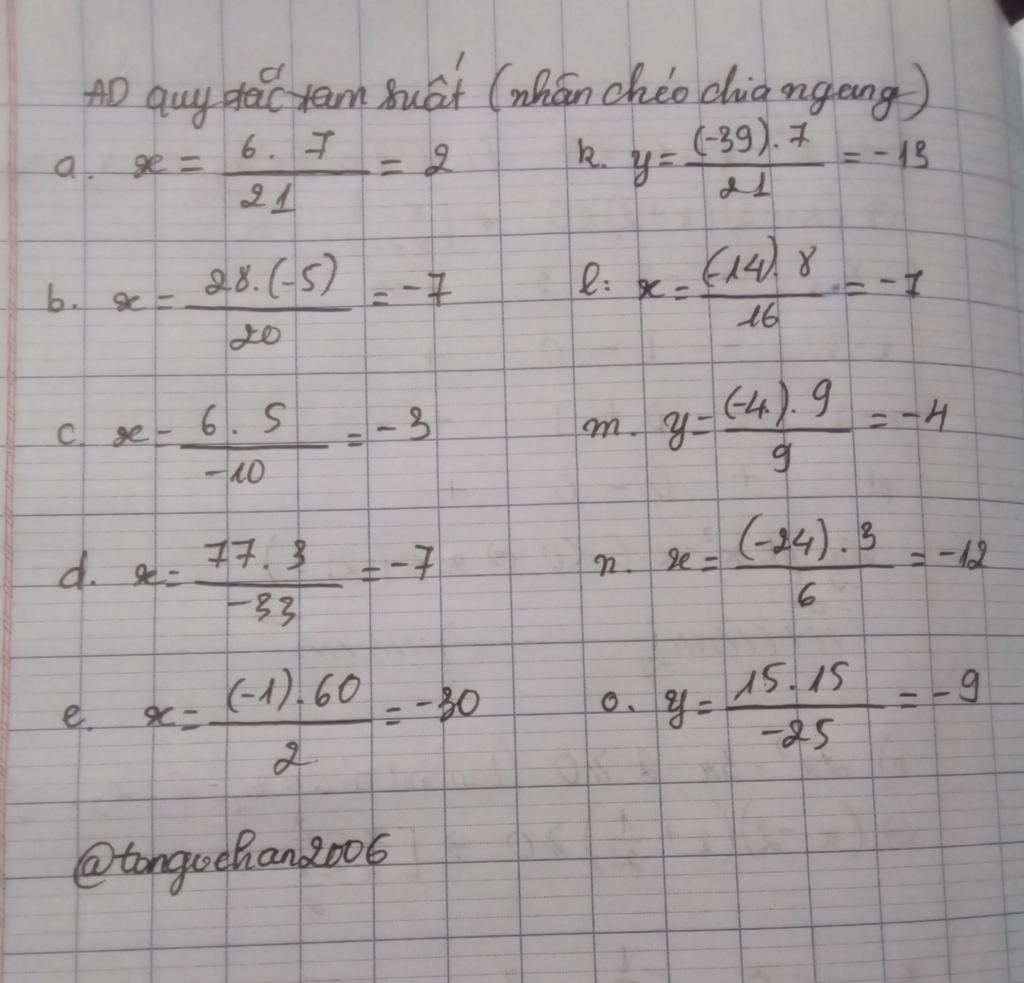 AD quy tắc tam suất (nhân chéo chia ngang)
a. x = 6.7/21 = 2 k. y = (-39).7/21 = -13
b. x = 28.(-5)/20 = -7 l: x = (-14).8/16 = -7
c. x = 6.5/-10 = -3 m. y = (-4).9/9 = -4
d. x = 77.3/-33 = -7 n. x = (-24).3/6 = -12
e. x = (-1).60/2 = -30 o. y = 15.15/-25 = -9
@tongvehan2006